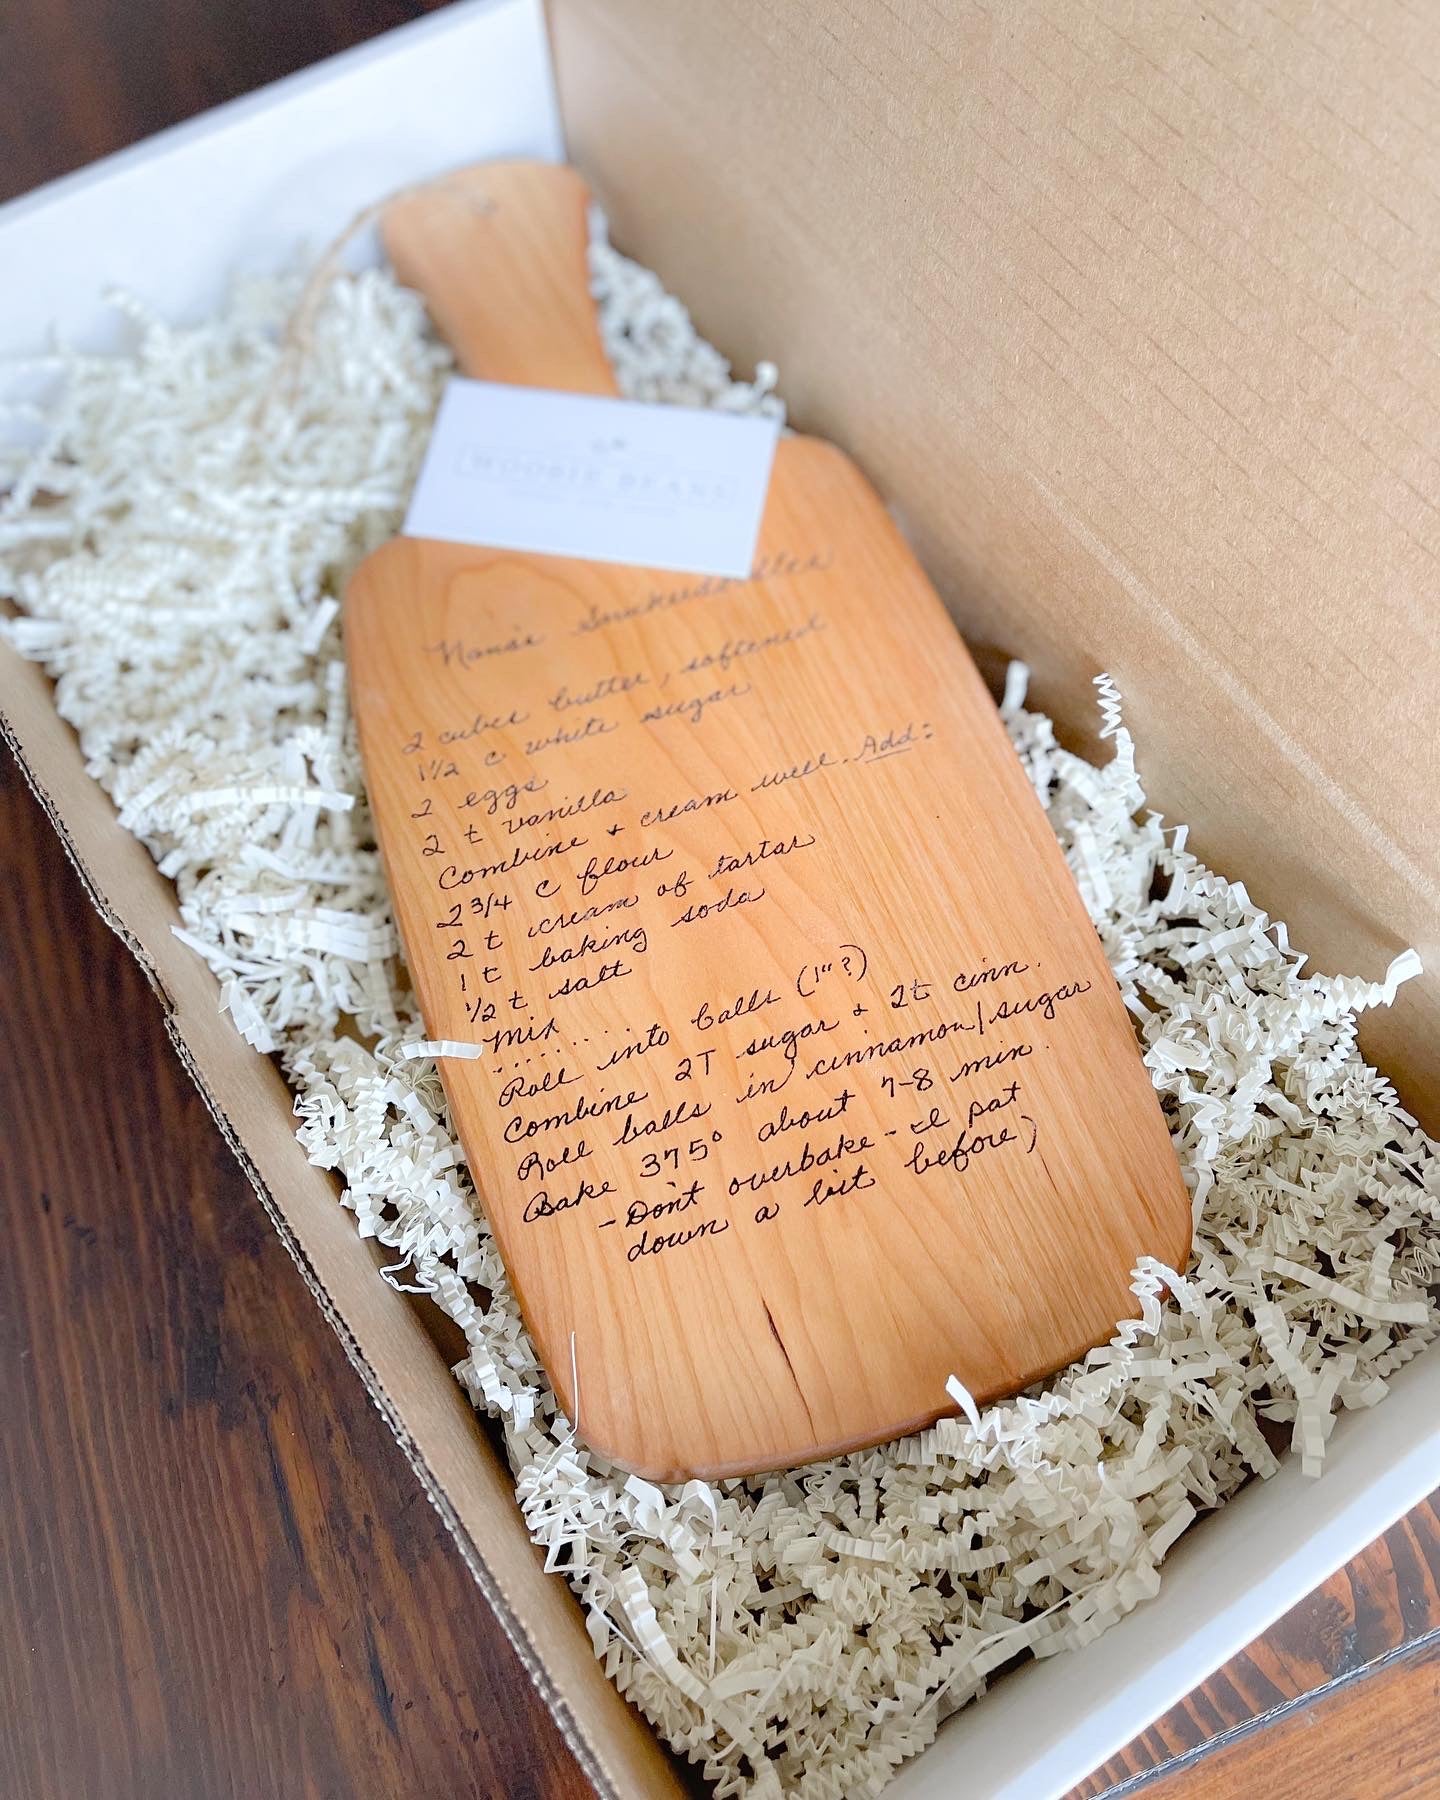 WOODIE BEANS
Nana's Snickerdoodles
2 cubes butter, softened
1 1/2 c white sugar
2 eggs
2 t vanilla
Combine + cream well. Add:
2 3/4 c flour
2 t cream of tartar
1 t baking soda
1/2 t salt
Mix
......
Roll into balls (1"?)
Combine 2T sugar + 2t cinn.
Roll balls in cinnamon/sugar
Bake 375° about 7-8 min.
- Don't overbake - I pat
down a bit before)